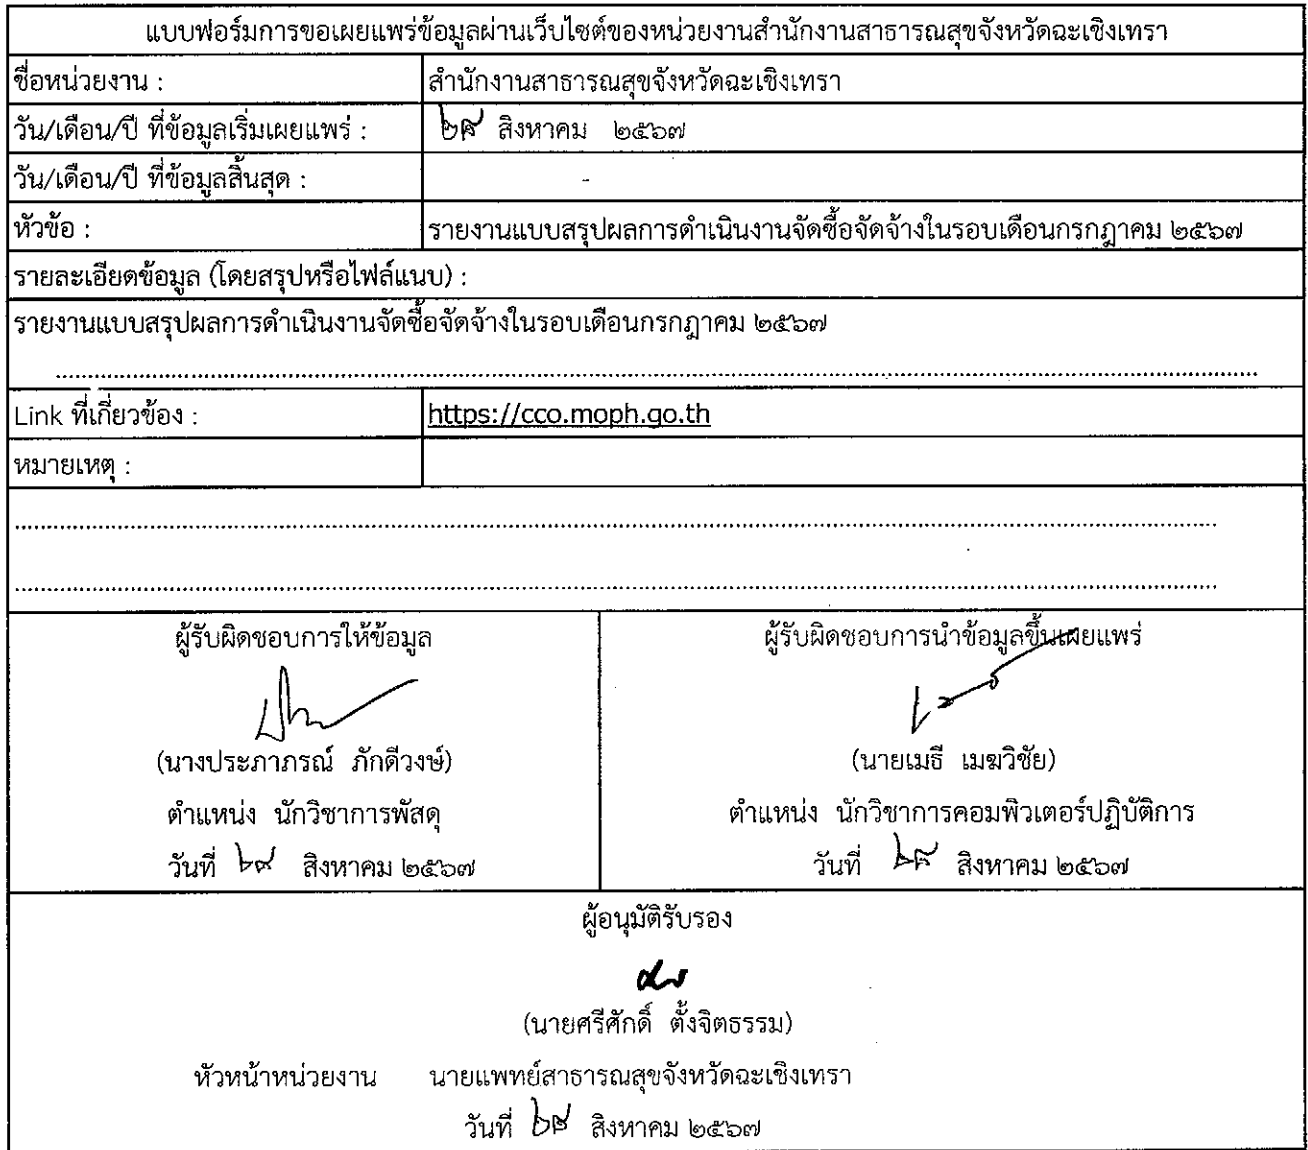 แบบฟอร์มการขอเผยแพร่ข้อมูลผ่านเว็บไซต์ของหน่วยงานสำนักงานสาธารณสุขจังหวัดฉะเชิงเทรา
ชื่อหน่วยงาน : สำนักงานสาธารณสุขจังหวัดฉะเชิงเทรา
วัน/เดือน/ปี ที่ข้อมูลเริ่มเผยแพร่ : สิงหาคม ๒๕๖๗
วัน/เดือน/ปี ที่ข้อมูลสิ้นสุด : -
หัวข้อ : รายงานแบบสรุปผลการดำเนินงานจัดซื้อจัดจ้างในรอบเดือนกรกฎาคม ๒๕๖๗
รายละเอียดข้อมูล (โดยสรุปหรือไฟล์แนบ) :
รายงานแบบสรุปผลการดำเนินงานจัดซื้อจัดจ้างในรอบเดือนกรกฎาคม ๒๕๖๗
Link ที่เกี่ยวข้อง : https://cco.moph.go.th
หมายเหตุ :
ผู้รับผิดชอบการให้ข้อมูล
(นางประภาภรณ์ ภักดีวงษ์)
ตำแหน่ง นักวิชาการพัสดุ
วันที่ สิงหาคม ๒๕๖๗
ผู้รับผิดชอบการนำข้อมูลขึ้นเผยแพร่
(นายเมธี เมฆวิชัย)
ตำแหน่ง นักวิชาการคอมพิวเตอร์ปฏิบัติการ
วันที่ สิงหาคม ๒๕๖๗
ผู้อนุมัติรับรอง
(นายศรีศักดิ์ ตั้งจิตธรรม)
หัวหน้าหน่วยงาน นายแพทย์สาธารณสุขจังหวัดฉะเชิงเทรา
วันที่ สิงหาคม ๒๕๖๗